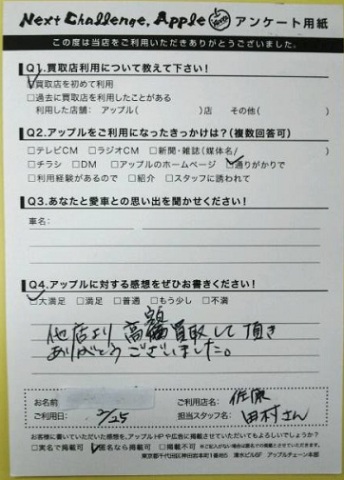 Next Challenge, Apple アンケート用紙
この度は当店をご利用いただきありがとうございました。
Q1.買取店利用について教えて下さい!
☑買取店を初めて利用
□過去に買取店を利用したことがある
利用した店舗: アップル( )店 その他( )
Q2.アップルをご利用になったきっかけは?(複数回答可)
□テレビCM □ラジオCM □新聞・雑誌(媒体名/ )
□チラシ □DM □アップルのホームページ ☑通りがかりで
□利用経験があるので □紹介 □スタッフに誘われて
Q3.あなたと愛車との思い出を聞かせください!
車名:
Q4.アップルに対する感想をぜひお書きください!
☑大満足 □満足 □普通 □もう少し □不満
他店より高額買取して頂き
ありがとうございました。
お名前 ご利用店名: 佐原
ご利用日: 2/25 担当スタッフ名: 田村さん
お客様に書いていただいた感想を、アップルHPや広告に掲載させていただいてもよろしいでしょうか?
□実名で掲載可 ☑匿名なら掲載可 □掲載不可 ※ご記入がない場合は匿名での掲載とさせていただきます。
東京都千代田区神田岩本町1番地5 清水ビル6F アップルチェーン本部